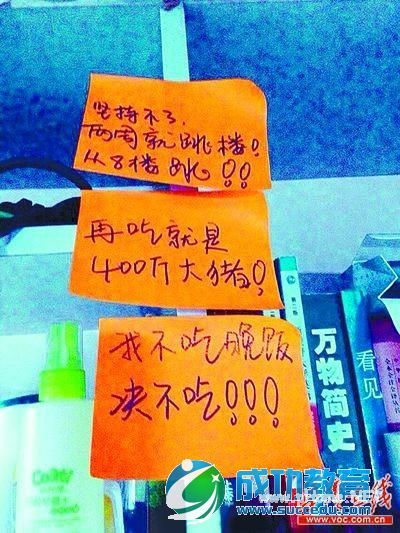 坚持不了，
两周就跳楼！
从8楼跳！！
再吃就是
400斤大猪！
我不吃晚饭
决不吃！！！
万物简史
看见
成功教育
www.succedu.com
www.voc.com.cn